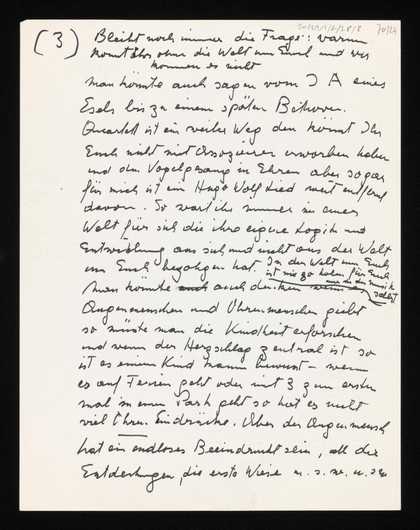 (3) Bleibt noch immer die Frage: warum
kommt Ihr ohne die Welt um Euch und wir
können es nicht
Man könnte auch sagen vom I A eines
Esels bis zu einem späten
Quartett ist ein weiter Weg den könnt Ihr
Euch nicht mit erworben haben
und den Vogelgesang in Ehren aber sogar
für mich ist ein Hugo Wolf Lied weit entfernt
davon. So wart ihr immer in einer
Welt für sich die ihre eigene Logik und
Entwicklung aus sich und nicht aus der Welt
um Euch bezogen hat. In der Welt um Euch
ist nie zu holen für Euch
nur in der Musik
selbst
Man könnte auch denken wenn
Augenmenschen und Ohrenmenschen giebt
so müsste man die Kindheit erforschen
und wenn der Herzschlag zentral ist so
ist es einem Kind kaum bewusst – wenn
es auf Ferien geht oder mit 3 zum ersten
mal in einen Park geht so hat es nicht
viel Ohren Eindrücke. Aber der Augenmensch
hat ein endloses Beeindruckt sein, all die
Entdeckungen, die erste Wiese u. s. w. u. s. w